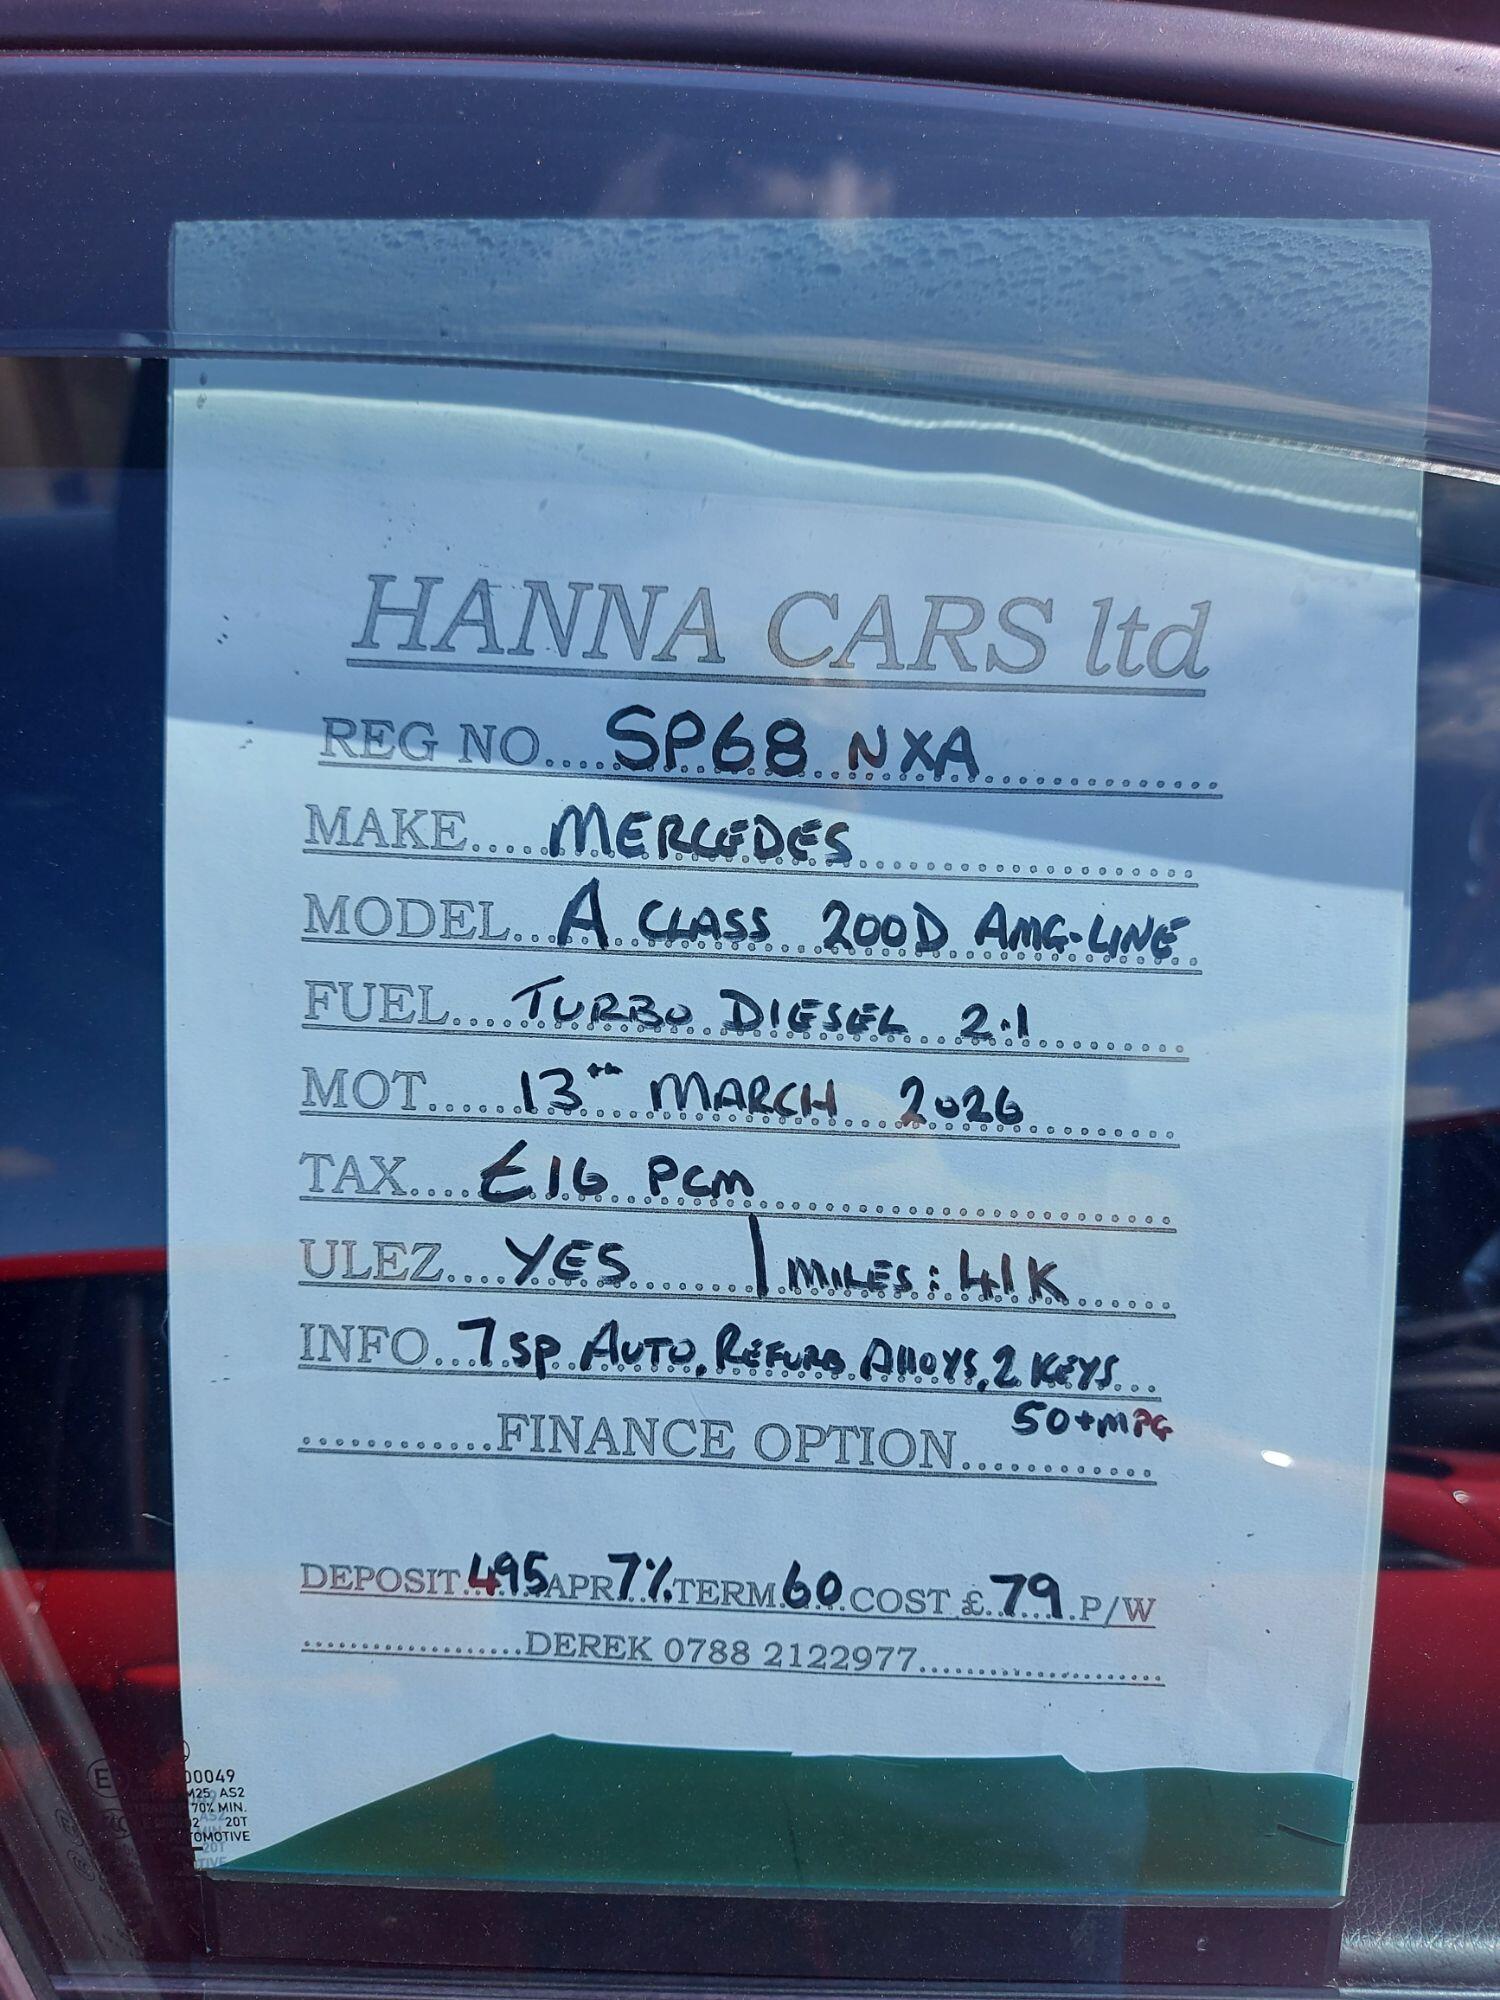 HANNA CARS ltd
REG NO.... SP68 NXA
MAKE.... MERCEDES
MODEL... A CLASS 200D AMG-LINE
FUEL.... TURBO DIESEL 2.1
MOT..... 13TH MARCH 2026
TAX..... £16 PCM
ULEZ.... YES | MILES: 41K
INFO... 7 SP AUTO, REFURB ALLOYS, 2 KEYS
50+MPG
............FINANCE OPTION............
DEPOSIT 495 APR 7% TERM 60 COST £ 79 P/W
..................DEREK 0788 2122977....................
00049
M25 AS2
70% MIN.
20T